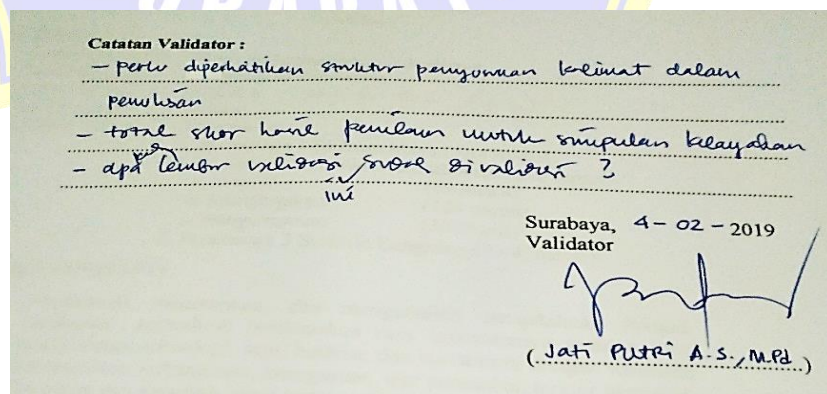 Catatan Validator :
- perlu diperhatikan struktur penyusunan kalimat dalam
penulisan
- total skor hasil penilaian untuk simpulan kelayakan
- apa lembar validasi ini sudah di validasi ?
Surabaya, 4 - 02 - 2019
Validator
(Jati Putri A.S., M.Pd.)